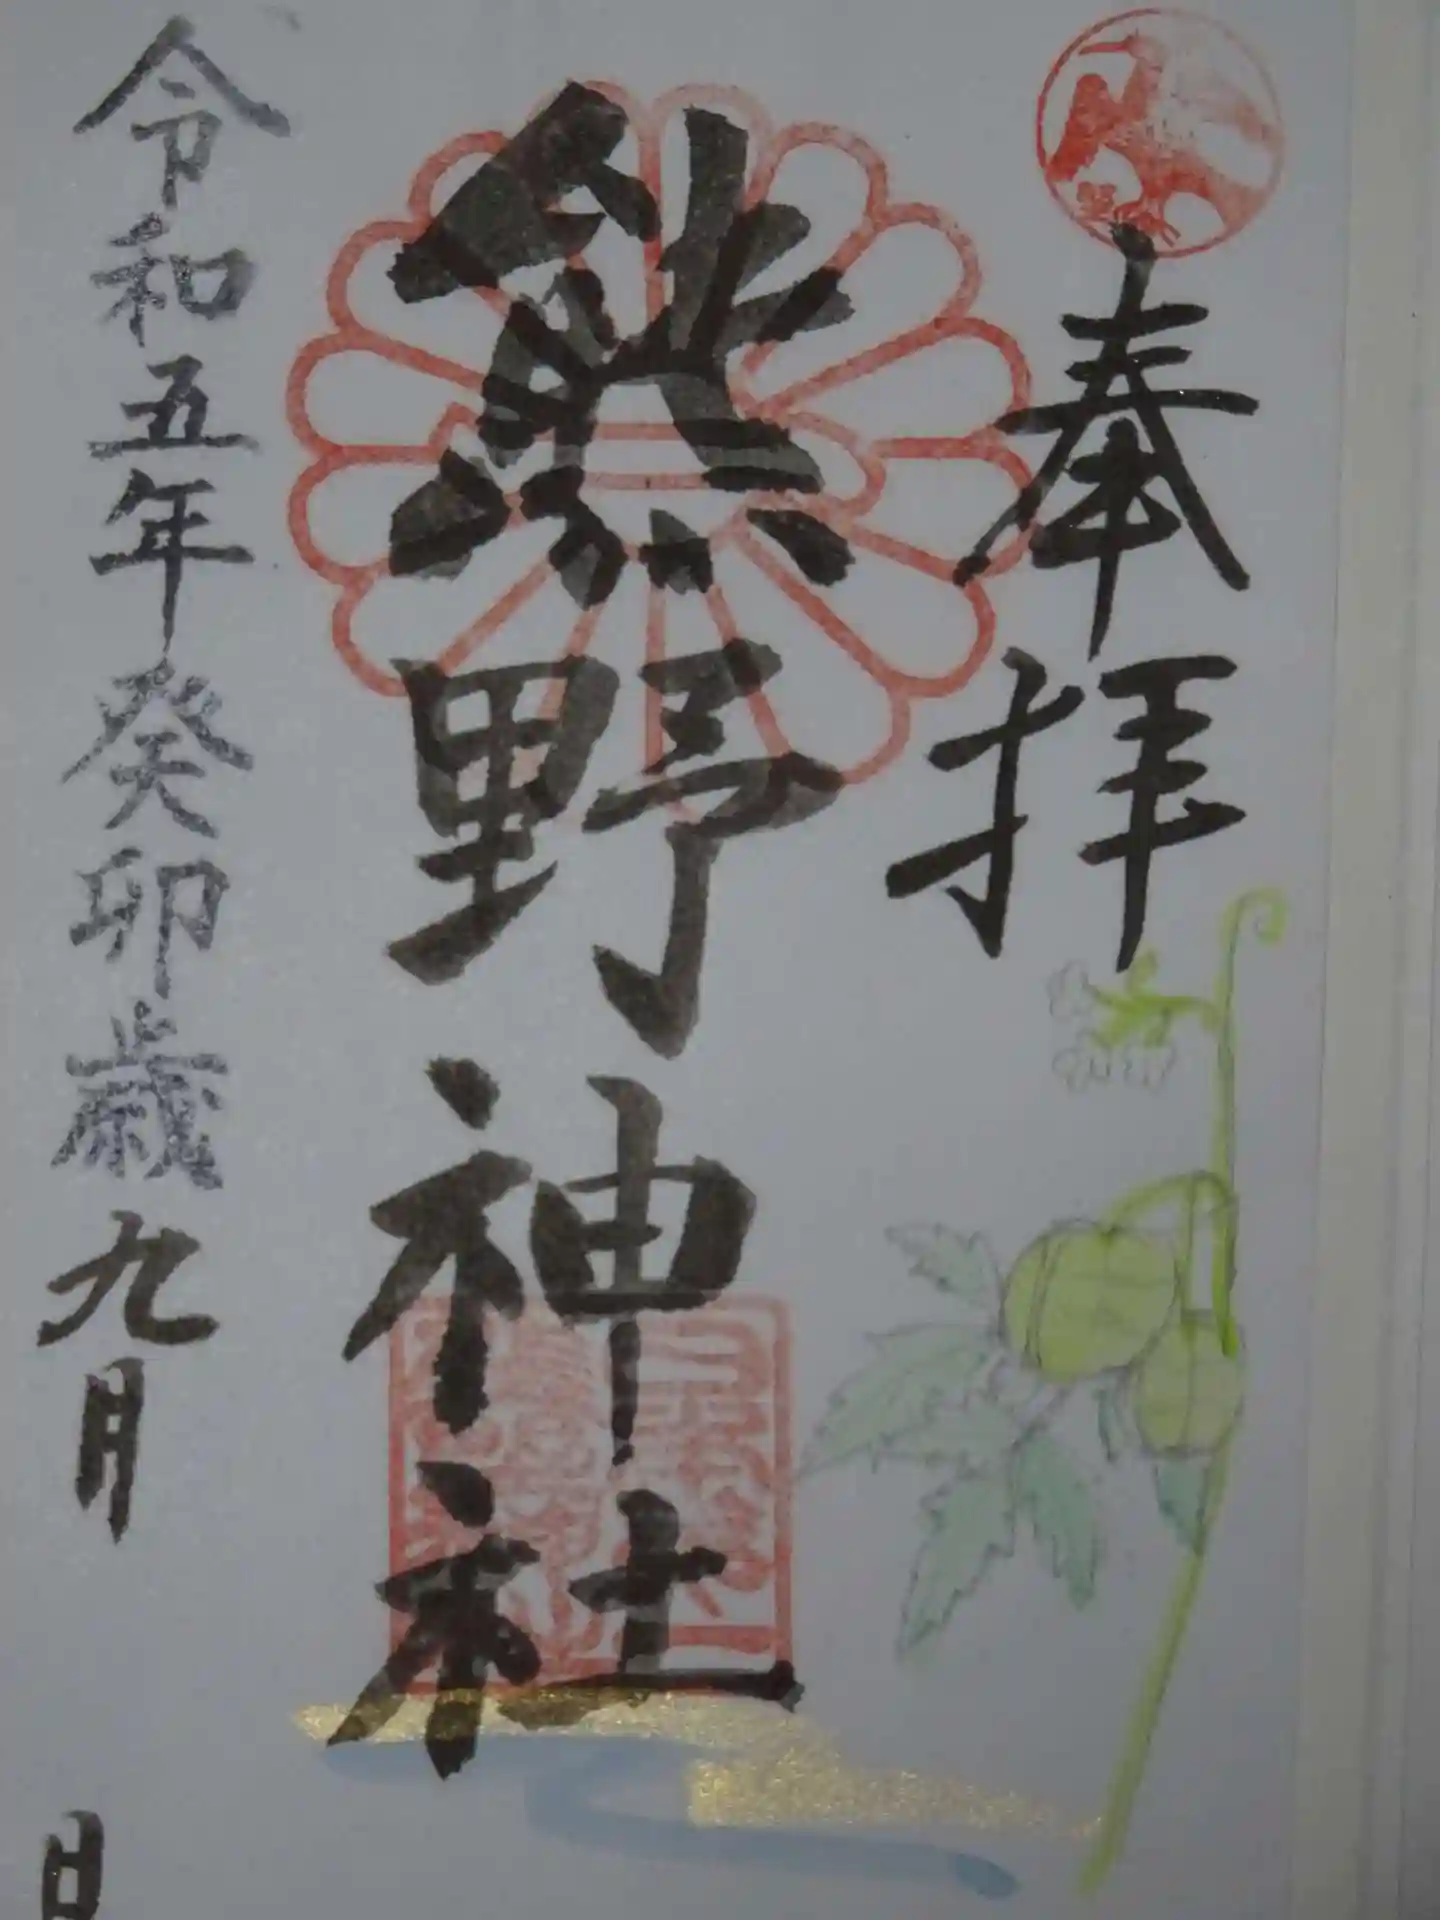 奉拝
熊野神社
令和五年癸卯歳九月 日